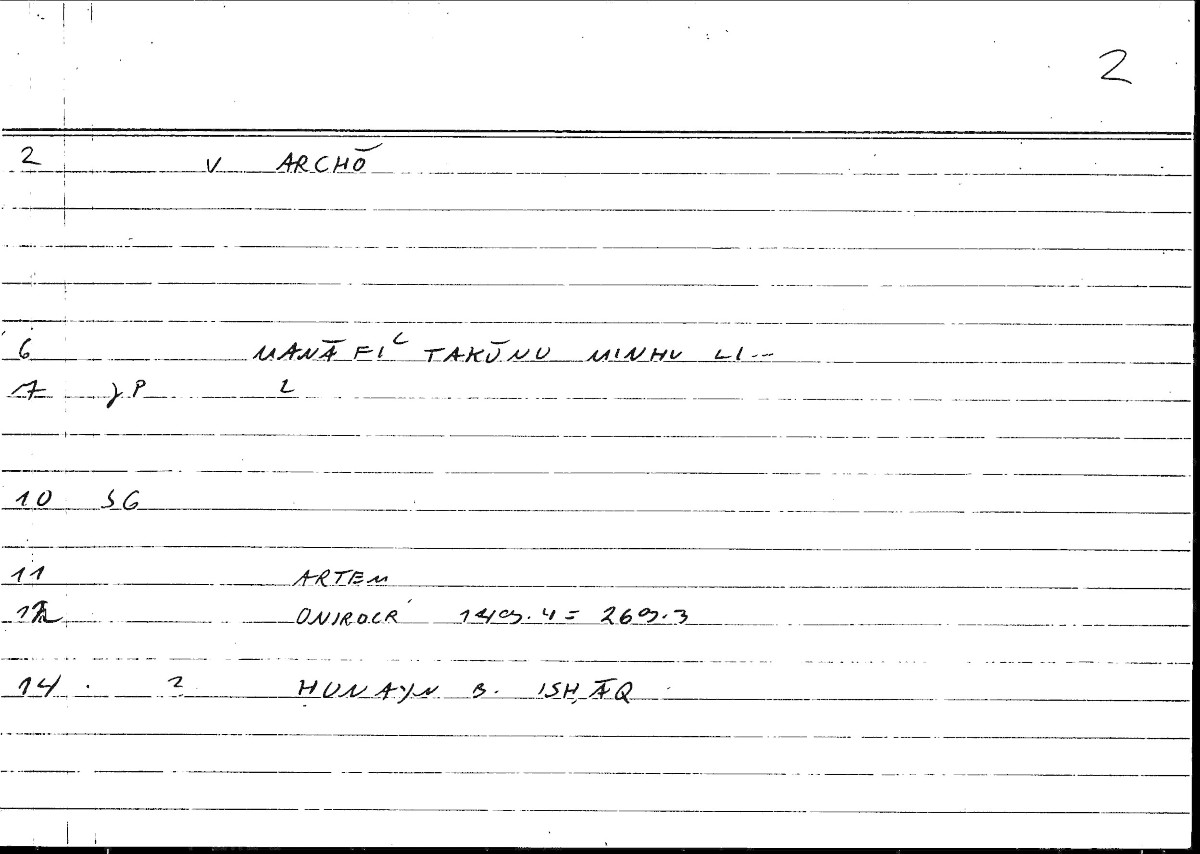 2
2 V ARCHŌ
6 MANĀFIʿ TAKŪNU MINHU LI--
7 JP 2
10 SG
11 ARTEM
12 ONIROCŔ 149.4 = 269.3
14 . 2 ḤUNAYN B. ISḤĀQ